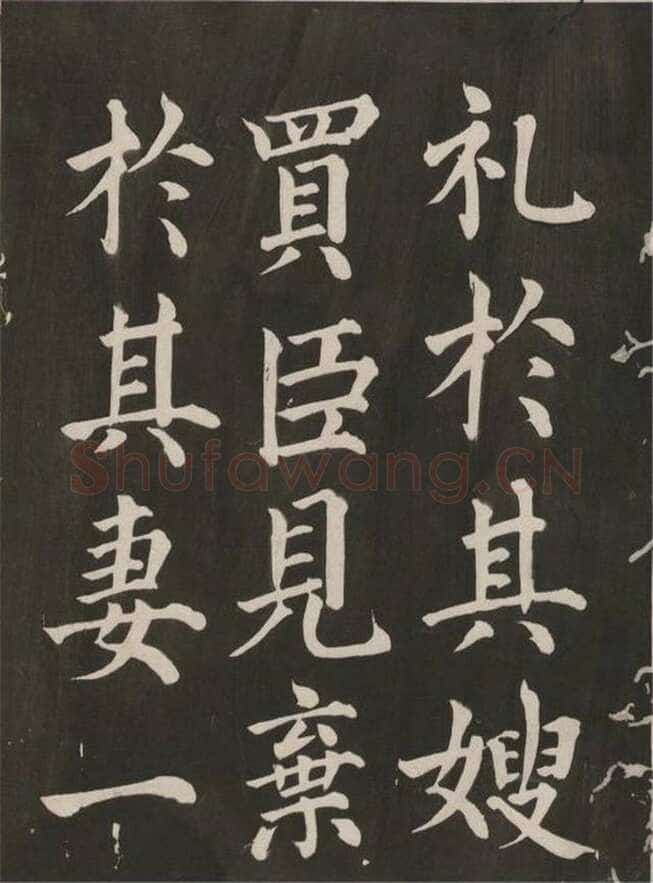 礼於其嫂
買臣見棄
於其妻一
Shufawang.CN